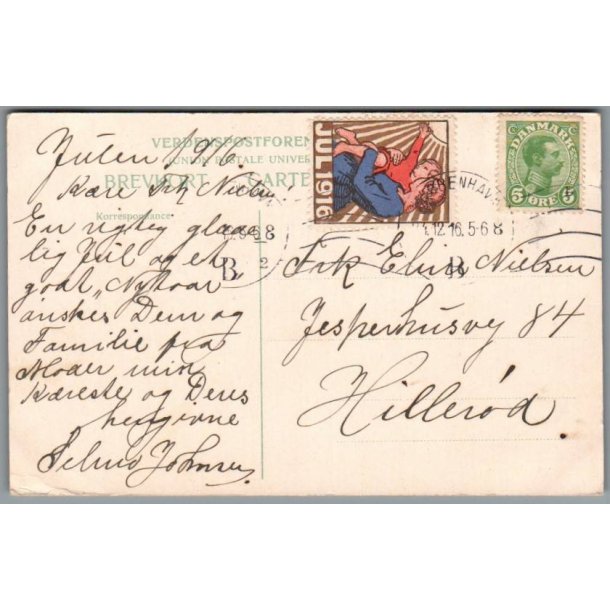 VERDENSPOSTFOREN
UNION POSTALE UNIVER
BREVKORT CARTE
Korrespondance
Julen 1916.
Kære Frk Nielsen!
En rigtig glæde
lig Jul og et
godt Nytaar
ønskes Dem og
Familie fra
Moder min
Kæreste og Deres
hengivne
JUL 1916
DANMARK
5 ØRE 5
.12.16.5-6 8
B
B
Frk Elna Nielsen
Jesperhusvej 84
Hillerød.